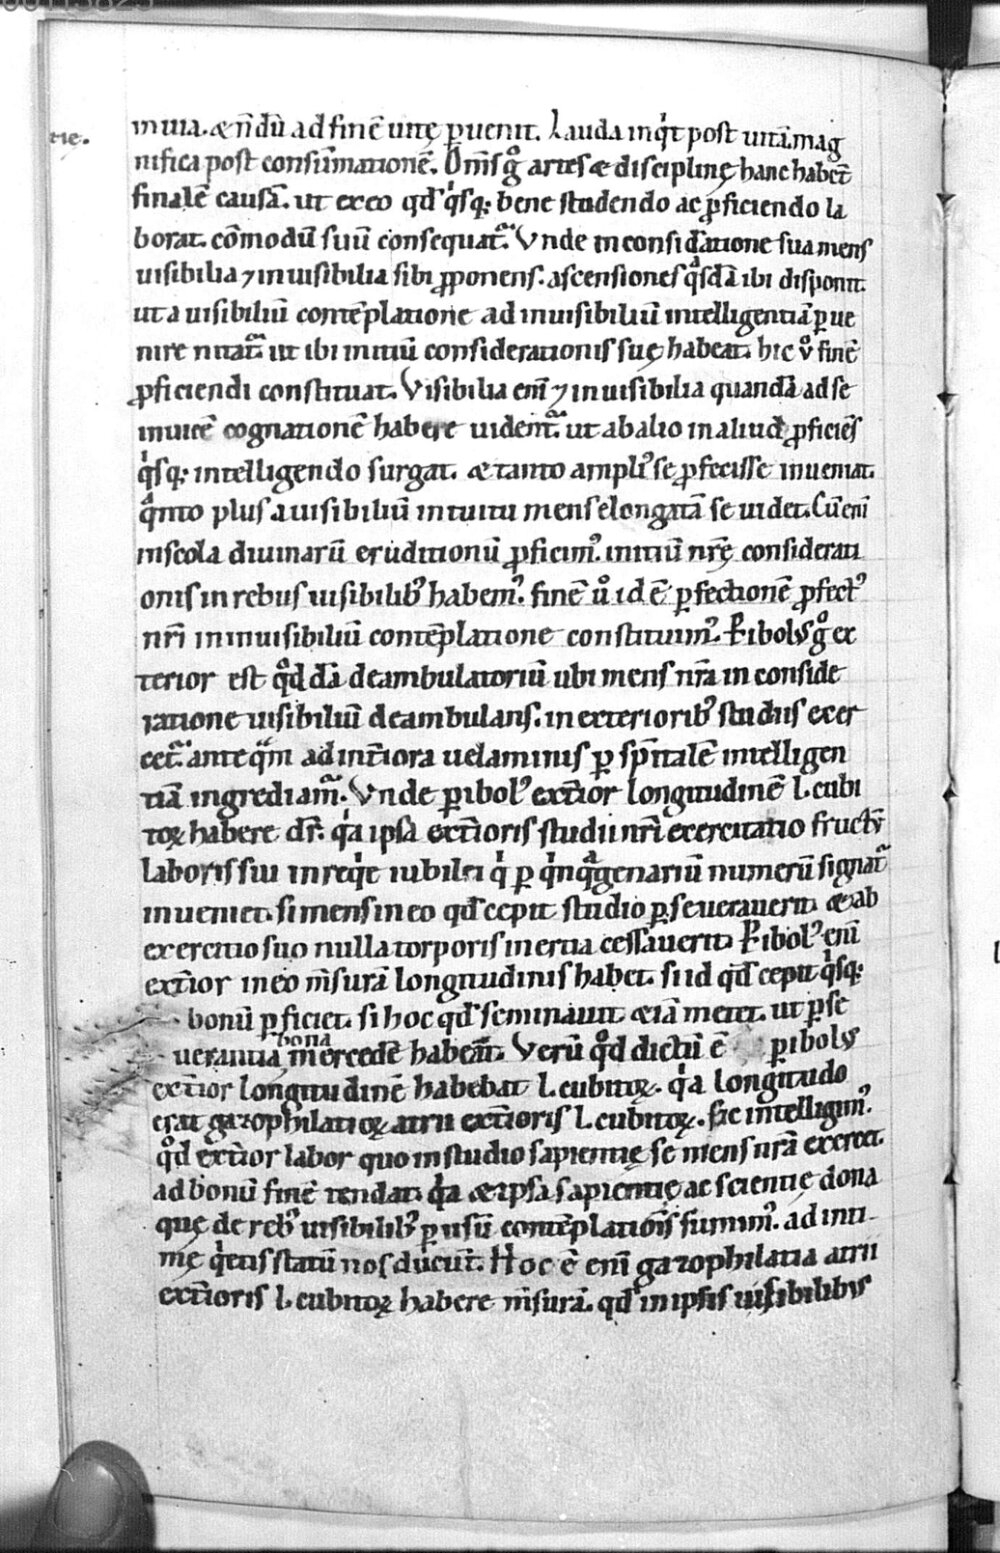 in uia. & ñdū ad finē uitę ꝑuenit. Lauda inqͥt post uitā. mag
tię.
nifica post consūmationē. Om̄s gͦ artes & disciplinę hanc habēt
finalē causā. ut ex eo qd̄ qͥsq; bene studendo ac ꝓficiendo la
borat. cōmodū suū consequat᷒. Vnde in considatione sua mens
uisibilia ⁊ inuisibilia sibi ꝓponens. ascensiones qͣsdā ibi disponit.
ut a uisibiliū contēplatione ad inuisibiliū intelligentiā ꝑue
nire nitat᷒. ut ibi initiū considerationis suę habeat. hic uͦ finē
ꝓficiendi constituat. Visibilia enī ⁊ inuisibilia quandā ad se
inuicē cognationē habere uident᷒. ut ab alio in aliud ꝓficiēs
qͥsq; intelligendo surgat. & tanto ampli᷒ se ꝓfecisse inueniat.
qͣnto plus a uisibiliū intuitu mens elongatā se uidet. Cū enī
in scola diuinarū eruditionū ꝓficim᷒. initiū nr̄ę considerati
onis in rebus uisibilib᷒ habem᷒. finē uͦ id ē ꝑfectionē ꝓfect᷒
nr̄i in inuisibiliū contēplatione constituim᷒. Pibolus gͦ ex
terior est qͦddā deambulatoriū ubi mens nr̄a in conside
ratione uisibiliū deambulans. in exteriorib᷒ studiis exer
cet᷒ anteqͣm ad int̄iora uelaminis ꝑ sp̄italē intelligen
tiā ingrediam᷒. Vnde ꝑibol᷒ ext̄ior longitudinē L. cubi
toꝝ habere dr̄. qͥa ipsa ext̄ioris studii nr̄i exercitatio fructū
laboris sui in reqͥe iubilei qͥ ꝑ qͥnqͣgenariū numerū signat᷒
inueniet. si mens in eo qd̄ cepit studio ꝑseuerauerit. & ab
exercitio suo nulla torporis inertia cessauerit. Pibol᷒ enī
ext̄ior in eo m̄surā longitudinis habet. si id qd̄ cepit qͥsq;
bonū ꝑficiet. si hoc qd̄ seminauit &iā metet. ut ꝑse
bona
uerantia mercedē habeat᷒. Verū qͦd dictū ē ꝑibolus
ext̄ior longitudinē habebat L. cubitoꝝ. qͥa longitudo
erat gazophilatioꝝ atrii ext̄ioris L. cubitoꝝ. sic intelligim᷒.
qͦd ext̄ior labor quo in studio sapientię se mens nr̄a exercet.
ad bonū finē tendat. qͥa & ipsa sapientię ac scientię dona
quę de reb᷒ uisibilib᷒ ꝑ usū contēplationis sumim᷒. ad inti
mę qͥetis statū nos ducūt. Hoc ē enī gazophilatia atrii
ext̄ioris L. cubitoꝝ habere m̄surā. qd̄ in ipsis uisibilibus